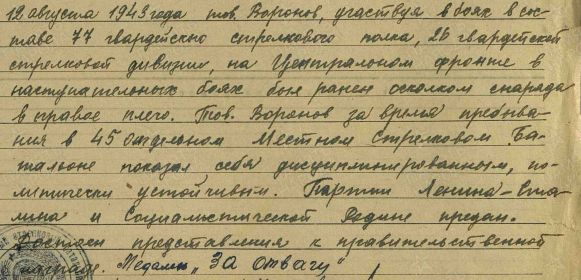 12 августа 1943 года тов. Воронов, участвуя в боях в сос-
таве 77 гвардейско стрелкового полка, 26 гвардейской
стрелковой дивизии, на Центральном фронте в
наступательных боях был ранен осколком снаряда
в правое плечо. Тов. Воронов за время пребыва-
ния в 45 отдельном Местном Стрелковом Ба-
тальоне показал себя дисциплинированным, по-
литически устойчивым. Партии Ленина-Ста-
лина и Социалистической Родине предан.
Достоен представления к правительственной
награде. Медаль "За отвагу"